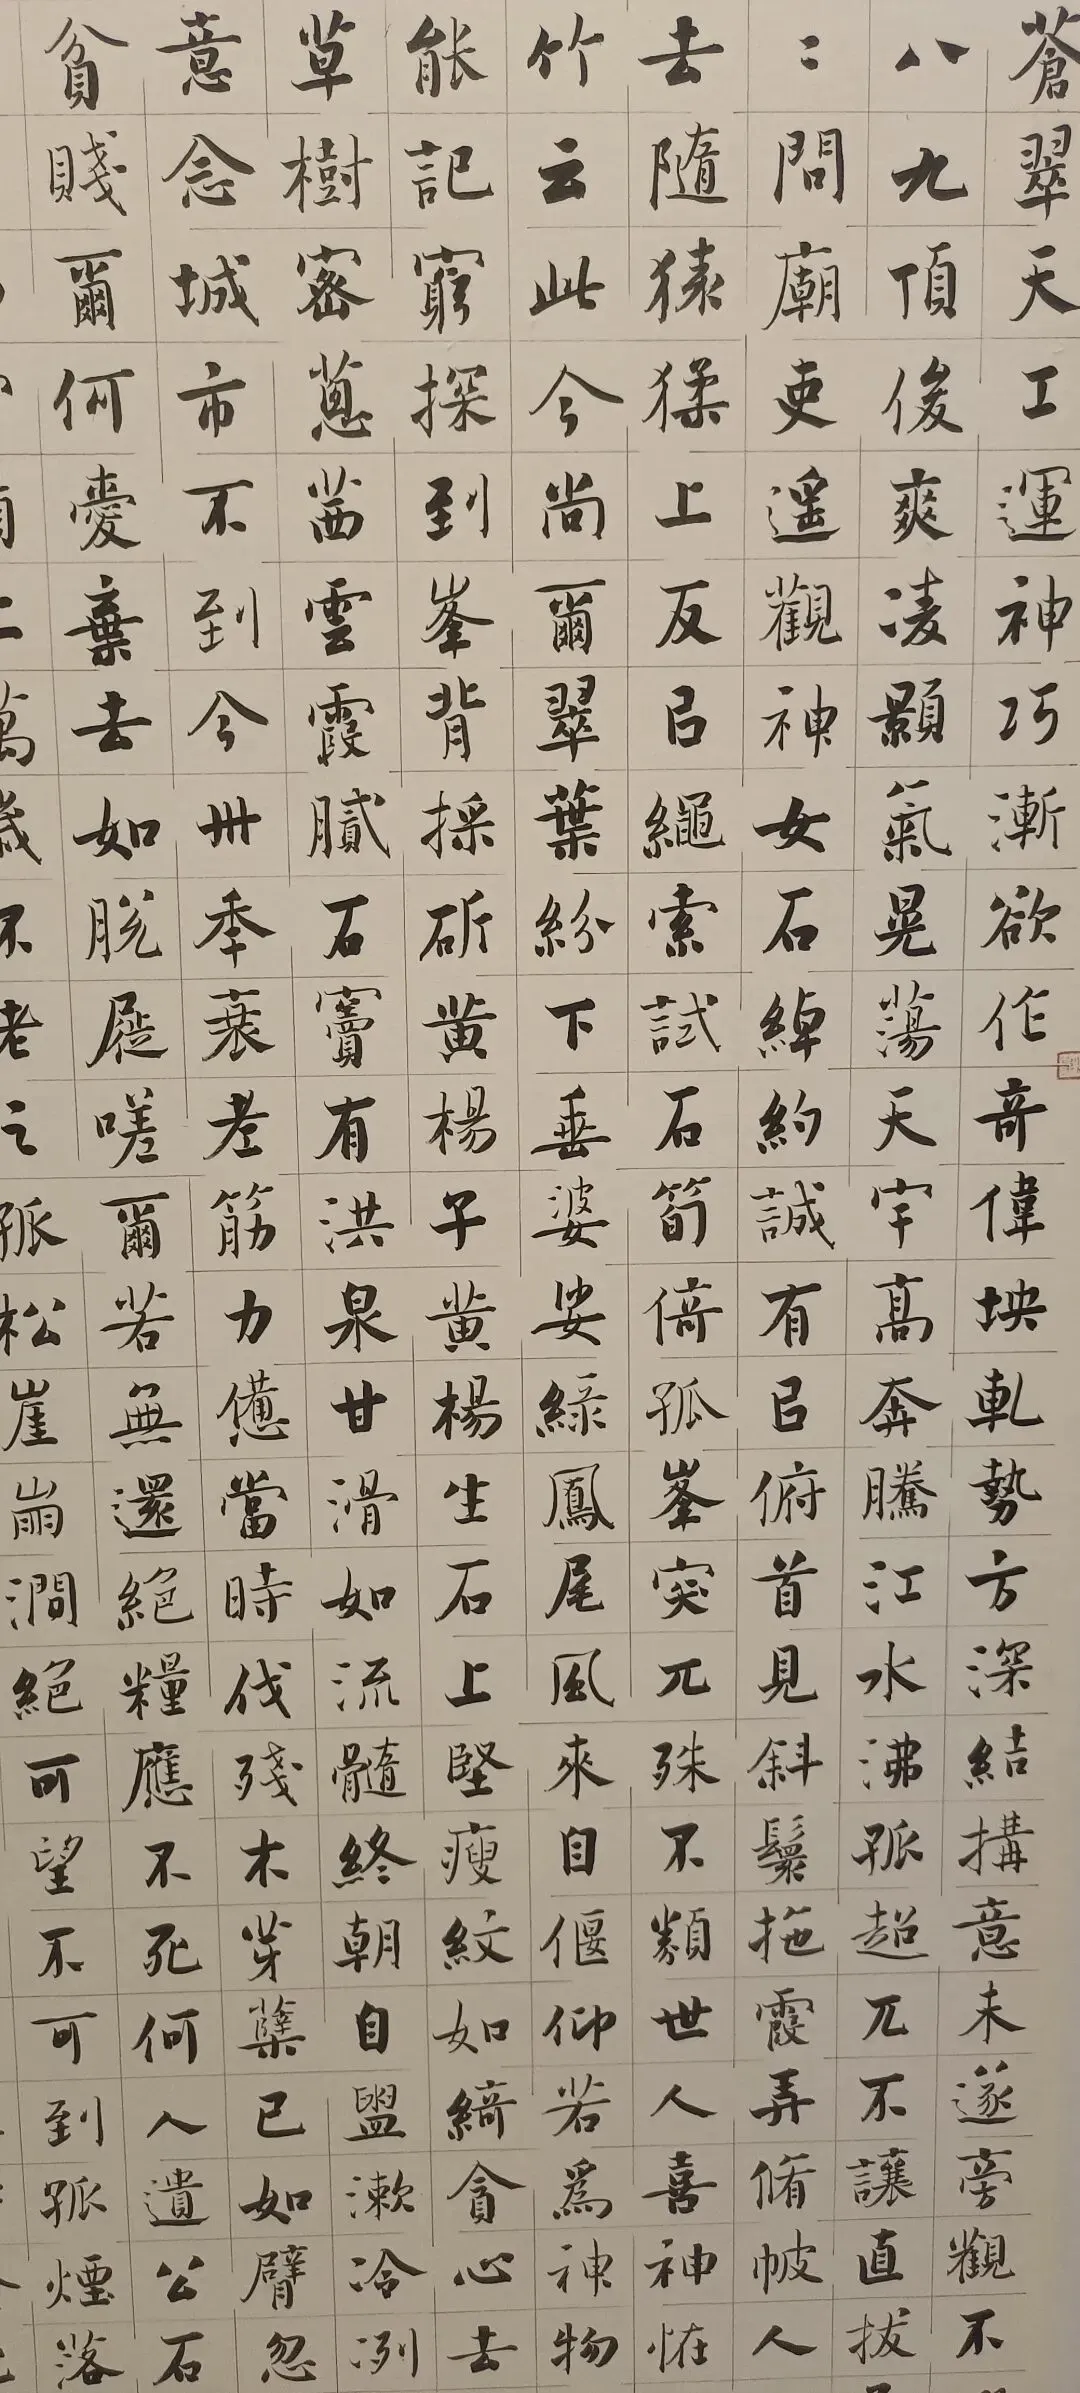 蒼翠天工運神巧漸欲作奇偉坱軋勢方深結搆意未遂旁觀不
八九頂俊爽凌顥氣晃蕩天宇高奔騰江水沸孤超兀不讓直拔
二問廟吏遥觀神女石綽約誠有㠯俯首見斜鬟拖霞弄脩帔人
去隨猿猱上反㠯繩索試石筍倚孤峯突兀殊不類世人喜神怪
竹云此今尚爾翠葉紛下垂婆娑綠鳳尾風來自偃仰若爲神物
能記窮探到峯背採斫黄楊子黄楊生石上堅瘦紋如綺貪心去
草樹密蔥蒨雲霞膩石竇有洪泉甘滑如流髓終朝自盥漱冷冽
意念城市不到今卅年衰老筋力憊當時伐殘木芽蘖已如臂忽
貧賤爾何憂棄去如脫屣嗟爾若無還絕糧應不死何人遺公石
萬歲不老之孤松崖崩澗絕可望不可到孤煙落